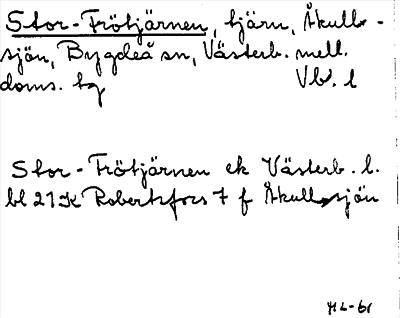 Stor-Frötjärnen, tjärn, Åkull-
sjön, Bygdeå sn, Västerb. mell.
doms. tg Vb. l
Stor-Frötjärnen ek Västerb. l.
bl 21K Robertsfors 7 f Åkullsjön
HL-61